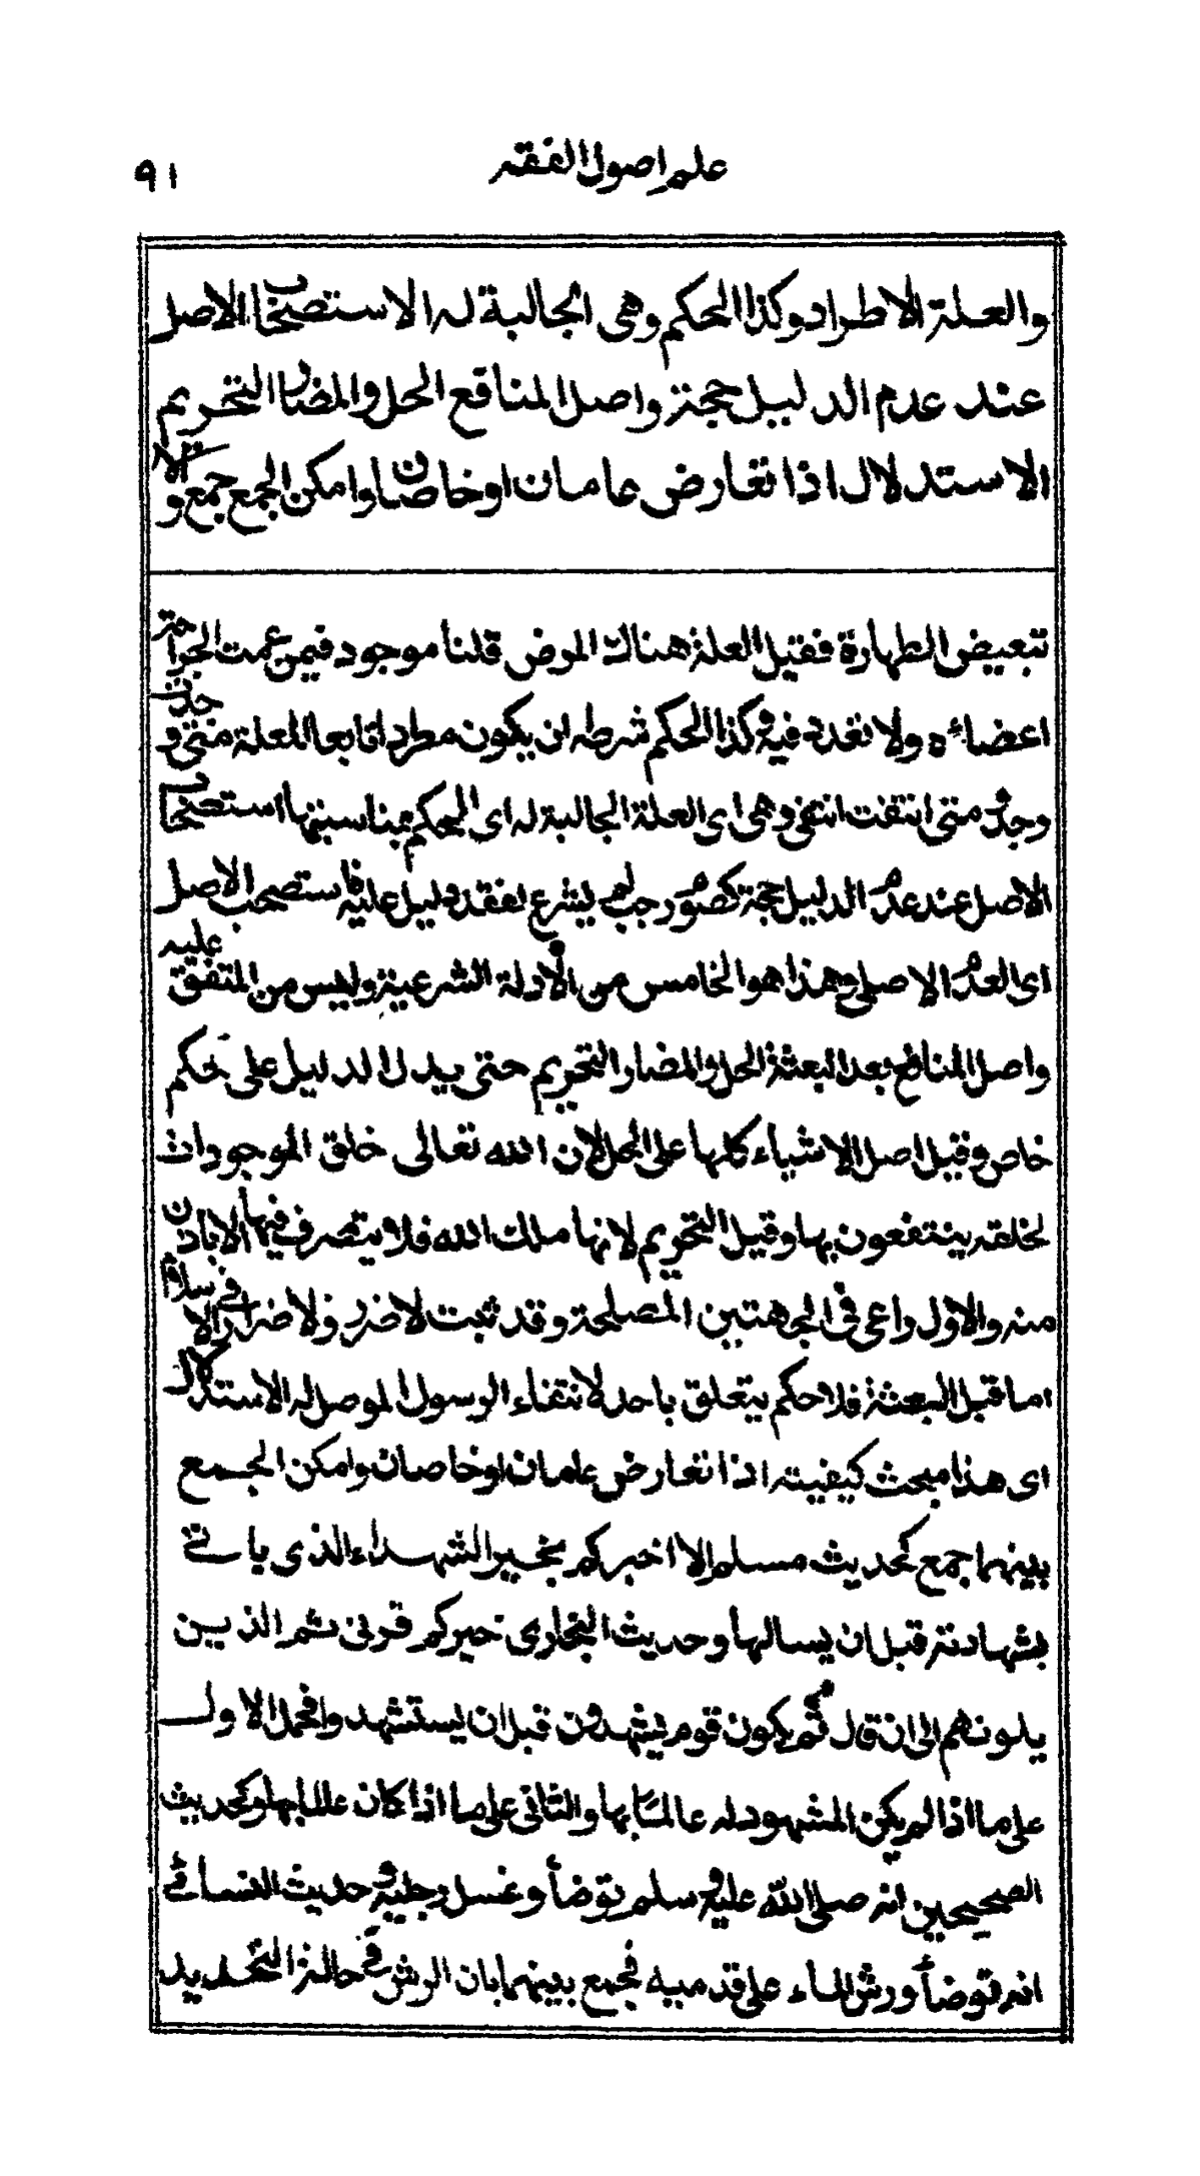 علم اصول الفقه
٩١
والعلة الاطراد وكذا الحكم وهي الجالبة له الاستصحاب الاصل
عند عدم الدليل حجة واصل المنافع الحل والمضار التحريم
الاستدلال اذا تعارض عامان او خاصان وامكن الجمع جمع والا
تبعيض الطهارة فقيل العلة هناك المرض قلنا موجود فيمن عمت الجراحة
اعضاءه ولا تعدد فيه وكذا الحكم شرطه ان يكون مطردا تابعا للعلة متى وجدت
وجد ومتى انتفت انتفى وهي اي العلة الجالبة له اي للحكم بمناسبتها استصحاب
الاصل عند عدم الدليل حجة كصوم رجب لم يشرع لفقد دليل عليه فاستصحب الاصل
اي العدم الاصلي وهذا هو الخامس من الادلة الشرعية وليس من المتفق عليه
واصل المنافع بعد البعثة الحل والمضار التحريم حتى يدل الدليل على حكم
خاص وقيل اصل الاشياء كلها على الحل لان الله تعالى خلق الموجودات
لخلقه ينتفعون بها وقيل التحريم لانها ملك الله فلا يتصرف فيها الا باذن
منه والاول راعى في الجهتين المصلحة وقد ثبت لا ضرر ولا ضرار في الاسلام
اما قبل البعثة فلا حكم يتعلق باحد لانتفاء الرسول الموصل له الاستدلال
اي هذا مبحث كيفيته اذا تعارض عامان او خاصان وامكن الجمع
بينهما جمع كحديث مسلم الا اخبركم بخير الشهداء الذي ياتي
بشهادته قبل ان يسالها وحديث البخاري خيركم قرني ثم الذين
يلونهم الى ان قال ثم يكون قوم يشهدون قبل ان يستشهدوا فحمل الاول
على ما اذا لم يكن المشهود له عالما بها والثاني على ما اذا كان عالما بها وكحديث
الصحيحين انه صلى الله عليه وسلم توضأ وغسل رجليه وحديث النسائي
انه توضأ ورش الماء على قدميه فجمع بينهما بان الرش في حالة التجديد